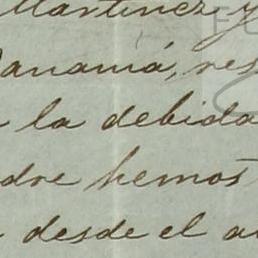 Martinez y
Panamá, res
la debida
dre hemos
desde el a